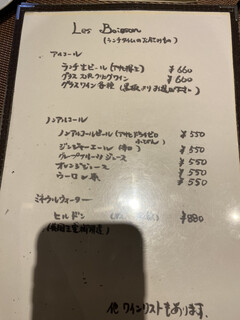 Les Boisson
(ランチタイムのお飲みもの)
アルコール
ランチ生ビール ¥660
グラス スパークリングワイン ¥660
グラスワイン各種 (黒板よりお選び下さい)
ノンアルコール
ノンアルコールビール ¥550
ジンジャーエール (辛口) ¥550
グレープフルーツジュース ¥550
オレンジジュース ¥550
ウーロン茶 ¥550
ミネラルウォーター
ヒルドン ¥880
(英国王室御用達)
他 ワインリストもあります。